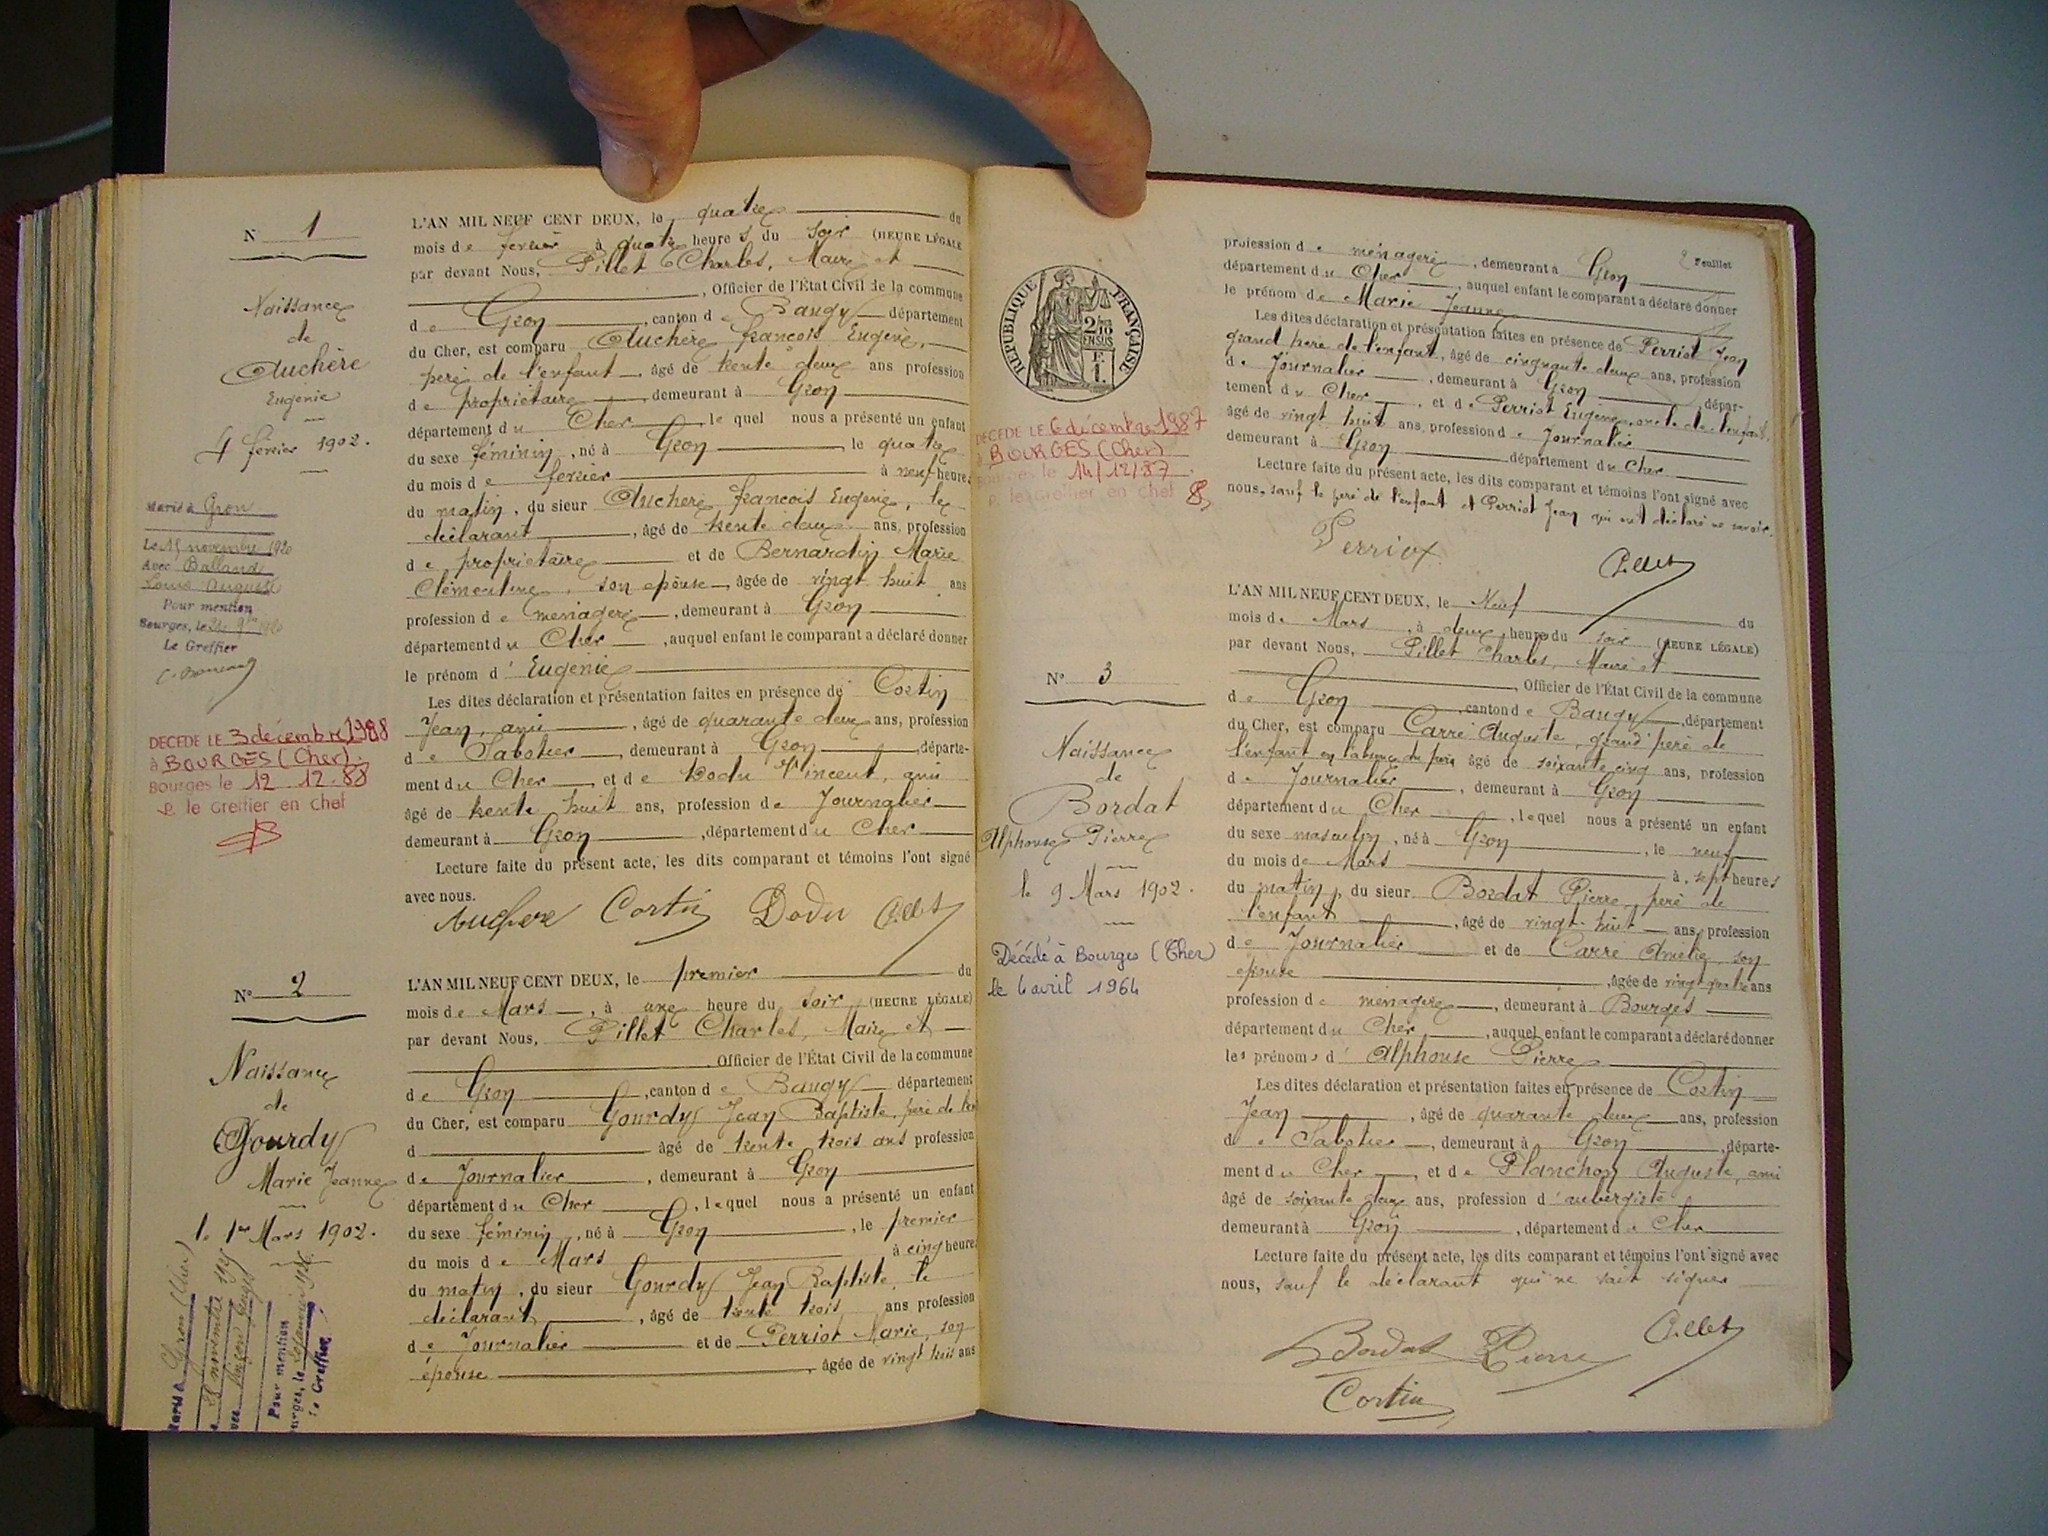 N 1
Naissance
de
Auchère
Eugénie
4 février 1902.
Marié à Gron
Le 15 novembre 1920
Avec Balland
Louis Auguste
Pour mention
Bourges, le 24 9bre 1920
Le Greffier
DECEDE LE 3 décembre 1988
à BOURGES (Cher).
Bourges le 12.12.88
le Greffier en chef
L'AN MIL NEUF CENT DEUX, le quatre du
mois de fevrier à quatre heures du soir (HEURE LÉGALE
par devant Nous, Pillet Charles, Maire et
, Officier de l'État Civil de la commune
de Gron, canton de Baugy département
du Cher, est comparu Auchère François Eugène,
père de l'enfant, âgé de trente deux ans profession
de propriétaire, demeurant à Gron
département du Cher, lequel nous a présenté un enfant
du sexe féminin, né à Gron, le quatre
du mois de fevrier à neuf heures
du matin, du sieur Auchère, François Eugène, le
déclarant, âgé de trente deux ans, profession
de propriétaire et de Bernardin Marie
Clémentine, son epouse, âgée de vingt huit ans
profession de menagère, demeurant à Gron
département du Cher, auquel enfant le comparant a déclaré donner
le prénom d'Eugénie
Les dites déclaration et présentation faites en présence de Cortin
Jean, ami, âgé de quarante deux ans, profession
de Sabotier, demeurant à Gron, départe-
ment du Cher, et de Dodu Vincent, ami
âgé de trente huit ans, profession de Journalier
demeurant à Gron, département du Cher
Lecture faite du présent acte, les dits comparant et témoins l'ont signé
avec nous.
Auchère Cortin Dodu Pillet
N° 2
Naissance
de
Gourdy
Marie Jeanne
le 1er Mars 1902.
Marié à Gron (Cher)
novembre
Pour mention
Bourges, le
Le Greffier
L'AN MIL NEUF CENT DEUX, le premier du
mois de Mars, à une heure du soir (HEURE LÉGALE)
par devant Nous, Pillet Charles, Maire et
, Officier de l'État Civil de la commune
de Gron, canton de Baugy département
du Cher, est comparu Gourdy Jean Baptiste, père de l'en
d âgé de trente trois ans profession
de Journalier, demeurant à Gron
département du Cher, lequel nous a présenté un enfant
du sexe féminin, né à Gron, le premier
du mois de Mars à cinq heures
du matin, du sieur Gourdy Jean Baptiste, le
déclarant, âgé de trente trois ans profession
de Journalier et de Perriot Marie, son
épouse, âgée de vingt trois ans
2 Feuillet
profession de ménagère, demeurant à Gron
département du Cher, auquel enfant le comparant a déclaré donner
le prénom de Marie Jeanne
Les dites déclaration et présentation faites en présence de Perriot Jean
grand père de l'enfant, âgé de cinquante deux ans, profession
de Journalier, demeurant à Gron, dépar-
tement du Cher, et de Perriot Eugène, oncle de l'enfant,
âgé de vingt huit ans, profession de Journalier
demeurant à Gron département du Cher
Lecture faite du présent acte, les dits comparant et témoins l'ont signé avec
nous, sauf le père de l'enfant et Perriot Jean qui ont déclaré ne savoir.
Perriot Pillet
RÉPUBLIQUE FRANÇAISE
2 10
EN SUS
F.
1.
DECEDE LE 6 décembre 1987
à BOURGES (Cher)
Bourges le 14/12/87.
le Greffier en chef
N° 3
Naissance
de
Bordat
Alphonse Pierre
le 9 Mars 1902.
Décédé à Bourges (Cher)
le 6 avril 1964
L'AN MIL NEUF CENT DEUX, le Neuf du
mois de Mars, à deux heures du soir (HEURE LÉGALE)
par devant Nous, Pillet Charles, Maire et
, Officier de l'État Civil de la commune
de Gron, canton de Baugy, département
du Cher, est comparu Carré Auguste, grand'père de
l'enfant en l'absence du père âgé de soixante cinq ans, profession
de Journalier, demeurant à Gron
département du Cher, lequel nous a présenté un enfant
du sexe masculin, né à Gron, le neuf
du mois de Mars à sept heures
du matin, du sieur Bordat Pierre, père de
l'enfant, âgé de vingt-huit ans, profession
de Journalier et de Carré Amélie, son
épouse, âgée de vingt quatre ans
profession de ménagère, demeurant à Bourges
département du Cher, auquel enfant le comparant a déclaré donner
les prénoms d'Alphonse Pierre
Les dites déclaration et présentation faites en présence de Cortin
Jean, âgé de quarante deux ans, profession
de Sabotier, demeurant à Gron, départe-
ment du Cher, et de Planchon Auguste, ami
âgé de soixante deux ans, profession d'aubergiste
demeurant à Gron, département du Cher
Lecture faite du présent acte, les dits comparant et témoins l'ont signé avec
nous, sauf le déclarant qui ne sait signer
Bordat Pierre Pillet
Cortin